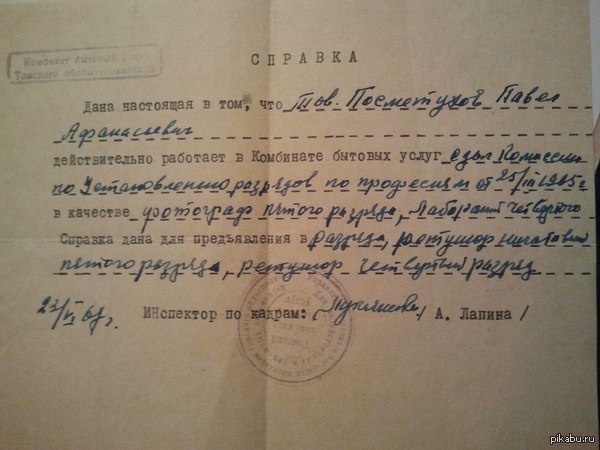 Комбинат бытовых
Томского облбытуправления
СПРАВКА
Дана настоящая в том, что тов. Посметухов Павел
Афанасьевич
действительно работает в Комбинате бытовых услуг
по установлению разрядов по профессиям от 25/III 1965 г
в качестве фотограф пятого разряда, лаборант четвертого
Справка дана для предъявления в разряда, ретушор
пятого разряда, ретушор четвертый разряд
23/VI 67 г. Инспектор по кадрам: / А. Лапина /
pikabu.ru